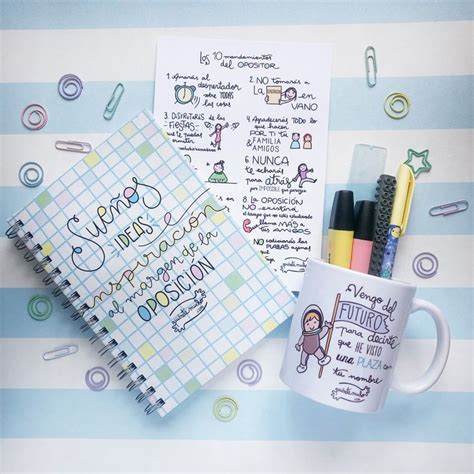 Los 10 mandamientos
del OPOSITOR
1. Amarás al
despertador
sobre TODAS
las cosas
2. NO tomarás a
LA
EN
VANO
3. DISFRUTARÁS
de las
FIESTAS
que te puedas
montar
4. Agradecerás TODO
lo que hacen
POR TI tu
FAMILIA
& AMIGOS
6. NUNCA
te echarás
para atrás
por IMPOSIBLE que
parezca
8. LA OPOSICIÓN
NO existirá
el tiempo que no estés estudiando
LLAMA MÁS
a TUS
AMIGOS
NO codiciarás
las PLAZAS ajenas
Sueños
IDEAS
inspiración
al margen de la
OPOSICIÓN
Vengo del
FUTURO
para decirte
que HE VISTO
una PLAZA
con
tu nombre